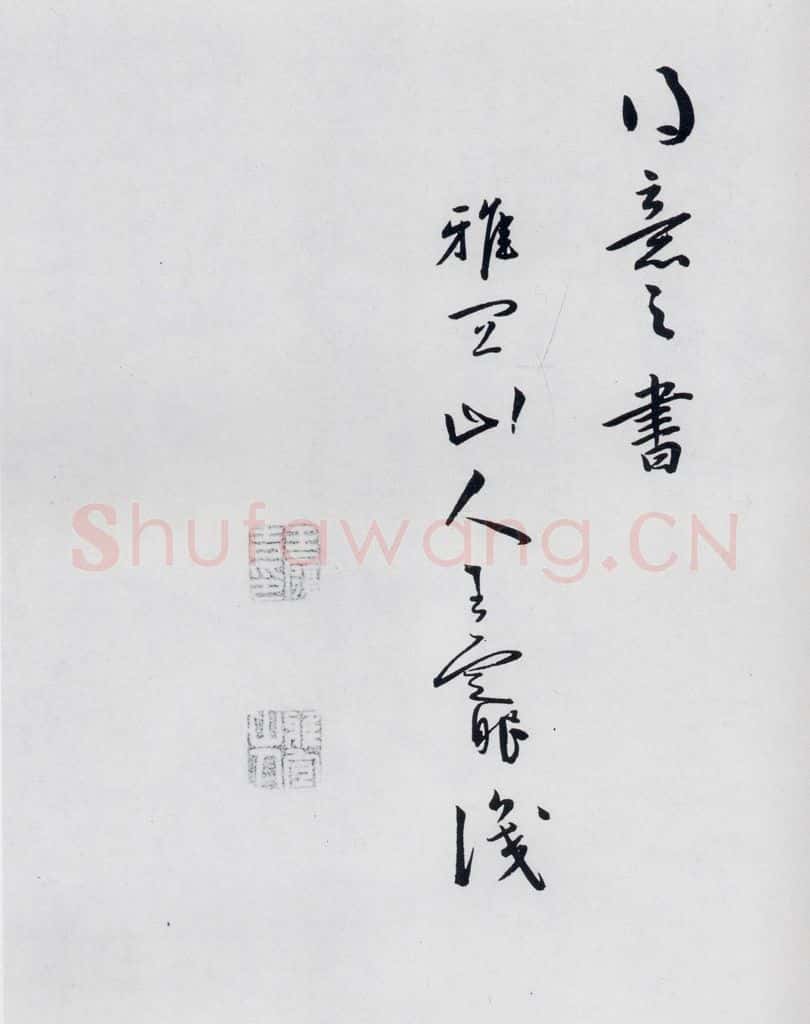 得意之書
雅宜山人王寵識
Shufawang.CN